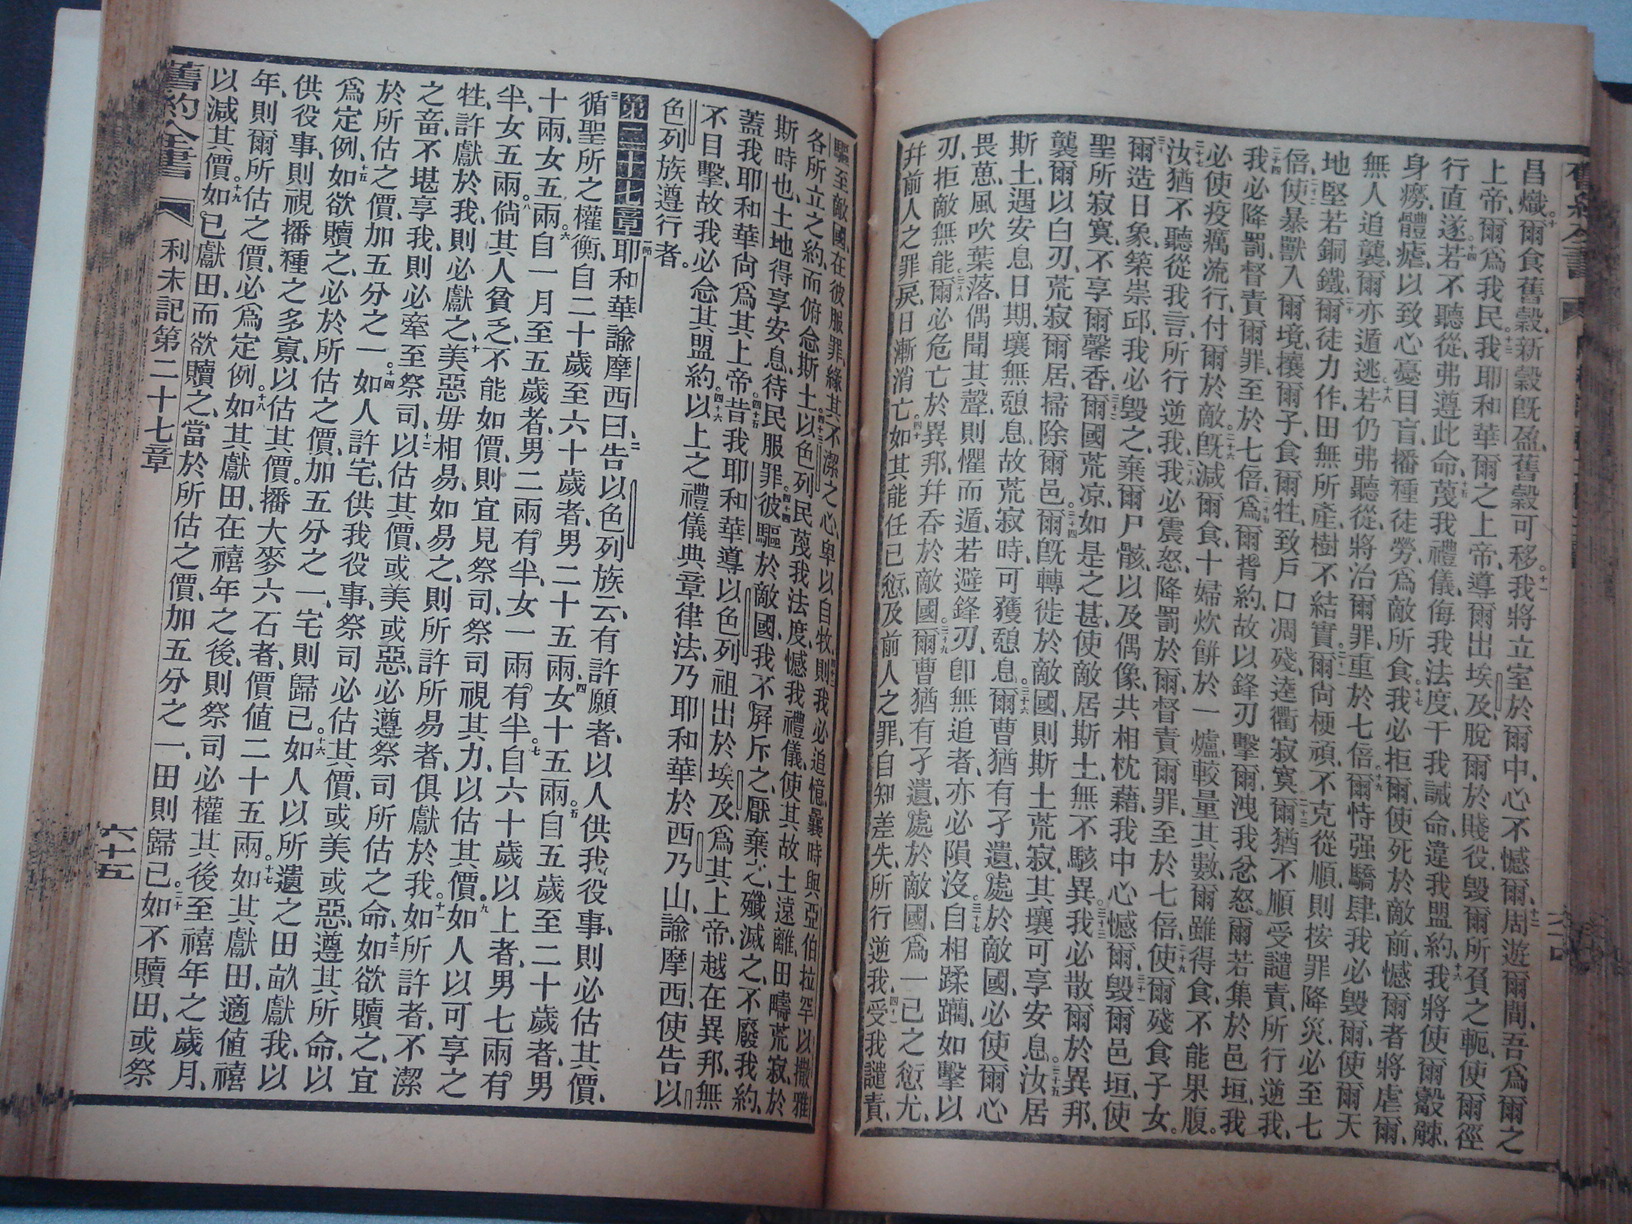 昌熾、爾食舊穀、新穀旣盈、舊穀可移。十一我將立室於爾中、心不憾爾、十二周遊爾間、吾爲爾之
上帝、爾爲我民。十三我耶和華爾之上帝、導爾出埃及、脫爾於賤役、毀爾所負之軛、使爾徑
行直遂。十四若不聽從、弗遵此命、十五蔑我禮儀、侮我法度、干我誡命、違我盟約、十六我將使爾觳觫、
身癆、體瘧、以致心憂目盲、播種徒勞、爲敵所食、十七我必拒爾、使死於敵前、憾爾者將虐爾、
無人追襲、爾亦遁逃。十八若仍弗聽從、將治爾罪、重於七倍、十九爾恃强驕肆、我必毀爾、使爾天
地堅若銅鐵、二十爾徒力作、田無所產、樹不結實。二十一爾尙梗頑、不克從順、則按罪降災、必至七
倍、二十二使暴獸入爾境、攘爾子、食爾牲、致戶口凋殘、逵衢寂寞。二十三爾猶不順受譴責、所行逆我、
二十四我必降罰、督責爾罪、至於七倍、二十五爲爾背約、故以鋒刃擊爾、洩我忿怒。爾若集於邑垣、我
必使疫癘流行、付爾於敵。二十六旣減爾食、十婦炊餅於一爐、較量其數、爾雖得食、不能果腹。
二十七汝猶不聽從我言、所行逆我、二十八我必震怒、降罰於爾、督責爾罪、至於七倍、二十九使爾殘食子女。
三十爾造日象、築崇邱、我必毀之、棄爾尸骸、以及偶像、共相枕藉、我中心憾爾、三十一毀爾邑垣、使
聖所寂寞、不享爾馨香、三十二爾國荒凉、如是之甚、使敵居斯土、無不駭異、三十三我必散爾於異邦、
襲爾以白刃、荒寂爾居、掃除爾邑。三十四爾旣轉徙於敵國、則斯土荒寂、其壤可享安息、三十五汝居
斯土、遇安息日期、壤無憩息、故荒寂時、可獲憩息。三十六爾曹猶有孑遺、處於敵國、必使爾心
畏葸、風吹葉落、偶聞其聲、則懼而遁、若避鋒刃、卽無追者、亦必隕沒、三十七自相蹂躪、如擊以
刃、拒敵無能、三十八爾必危亡於異邦、幷吞於敵國、三十九爾曹猶有孑遺、處於敵國、爲一己之愆尤、
幷前人之罪戾、日漸消亡。四十如其能任己愆、及前人之罪、自知差失、所行逆我、四十一受我譴責、
驅至敵國、在彼服罪、緣其不潔之心、卑以自牧、四十二則我必追憶曩時與亞伯拉罕以撒雅
各所立之約、而俯念斯土。四十三以色列民蔑我法度、憾我禮儀、使其故土遠離、田疇荒寂、於
斯時也、土地得享安息、待民服罪、四十四彼驅於敵國、我不屛斥之、厭棄之、殲滅之、不廢我約、
蓋我耶和華尙爲其上帝。四十五昔我耶和華導以色列祖出於埃及、爲其上帝、越在異邦、無
不目擊、故我必念其盟約。四十六以上之禮儀典章律法、乃耶和華於西乃山、諭摩西、使告以
色列族遵行者。
第二十七章 一節耶和華諭摩西曰、二告以色列族云、有許願者、以人供我役事、則必估其價、
三循聖所之權衡、自二十歲至六十歲者、男二十五兩、四女十五兩。五自五歲至二十歲者、男
十兩、女五兩。六自一月至五歲者、男二兩有半、女一兩有半。七自六十歲以上者、男七兩有
半、女五兩。八倘其人貧乏、不能如價、則宜見祭司、祭司視其力以估其價。九如人以可享之
牲、許獻於我、則必獻之、十美惡毋相易、如易之、則所許所易者、俱獻於我。十一如所許者、不潔
之畜、不堪享我、則必牽至祭司、十二以估其價、或美或惡、必遵祭司所估之命、十三如欲贖之、宜
於所估之價、加五分之一。十四如人許宅、供我役事、祭司必估其價、或美或惡、遵其所命、以
爲定例、十五如欲贖之、必於所估之價、加五分之一、宅則歸己。十六如人以所遺之田畝獻我、以
供役事、則視播種之多寡、以估其價。播大麥六石者、價値二十五兩。十七如其獻田、適値禧
年、則爾所估之價、必爲定例。十八如其獻田、在禧年之後、則祭司必權其後至禧年之歲月、
以減其價。十九如已獻田而欲贖之、當於所估之價、加五分之一、田則歸己。二十如不贖田、或祭
舊約全書 利未記第二十七章 六十五